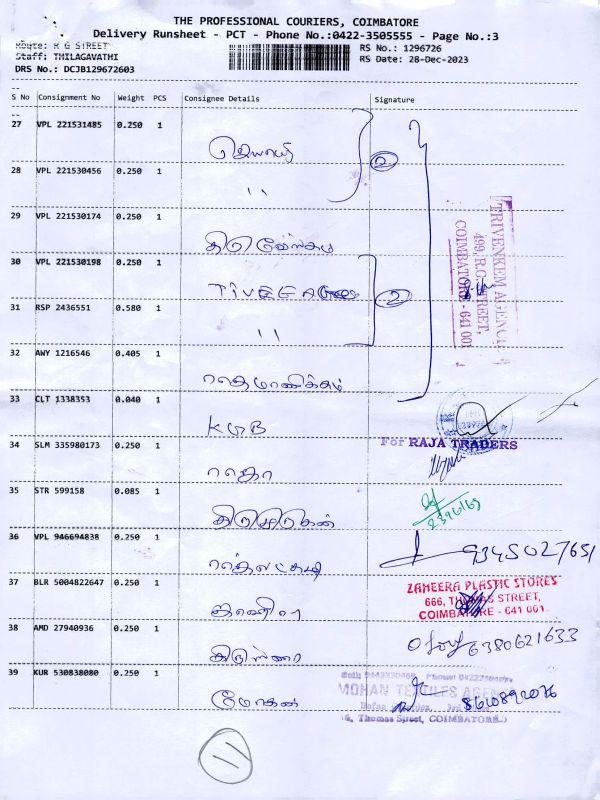 THE PROFESSIONAL COURIERS, COIMBATORE
Delivery Runsheet - PCT - Phone No.:0422-3505555 - Page No.:3
Route: R G STREET
RS No.: 1296726
Staff: THILAGAVATHI
RS Date: 28-Dec-2023
DRS No.: DCJB129672603
S No Consignment No Weight PCS Consignee Details Signature
27 VPL 221531485 0.250 1
2
28 VPL 221530456 0.250 1
"
29 VPL 221530174 0.250 1
30 VPL 221530198 0.250 1
2
31 RSP 2436551 0.580 1
"
TRIVENKEM AGENCIE
499, R.G. STREET,
COIMBATORE - 641 001
32 AWY 1216546 0.405 1
மாணிக்கம்
33 CLT 1338353 0.040 1
KGB
For RAJA TRADERS
34 SLM 335980173 0.250 1
ராஜா
35 STR 599158 0.085 1
திருமுருகன்
36 VPL 946694838 0.250 1
9345027651
37 BLR 5004822647 0.250 1
ZAHEERA PLASTIC STORES
666, THOMAS STREET,
COIMBATORE - 641 001
38 AMD 27940936 0.250 1
6380621633
39 KUR 530838080 0.250 1
மோகன்
MOHAN TEXTILES AGEN
8610892076
6, Thomas Street, COIMBATORE
11